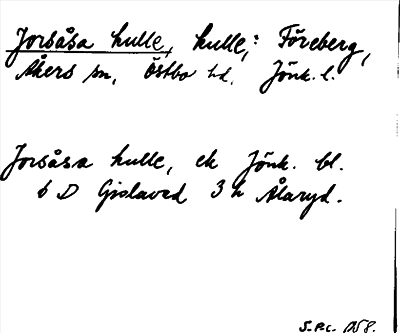 Jorsåsa hulle, hulle,: Föreberg,
Åkers sn, Östbo hd. Jönk. l.
Jorsåsa hulle, ek Jönk. bl.
6 D Gislaved 3 h Ålaryd.